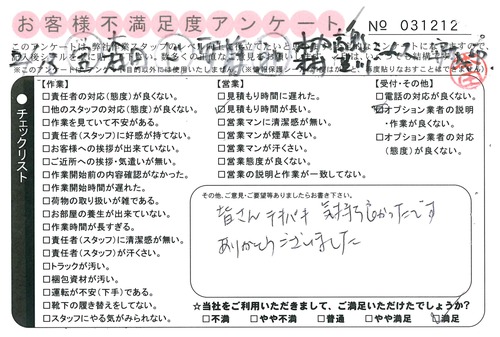 お客様不満足度アンケート
No 031212
チェックリスト
【作業】
□責任者の対応(態度)が良くない。
□他のスタッフの対応(態度)が良くない。
□作業を見ていて不安がある。
□責任者(スタッフ)に好感が持てない。
□お客様への挨拶が出来ていない。
□ご近所への挨拶・気遣いが無い。
□作業開始前の内容確認がなかった。
□作業開始時間が遅れた。
□荷物の取り扱いが雑である。
□お部屋の養生が出来ていない。
□作業時間が長すぎる。
□責任者(スタッフ)に清潔感が無い。
□責任者(スタッフ)が汗くさい。
□トラックが汚い。
□梱包資材が汚い。
□運転が不安(下手)である。
□靴下の履き替えをしてない。
□スタッフにやる気がみられない。
【営業】
□見積もり時間に遅れた。
□見積もり時間が長い。
□営業マンに清潔感が無い。
□営業マンが煙草くさい。
□営業マンが汗くさい。
□営業態度が良くない。
□営業の説明と作業が一致してない。
【受付・その他】
□電話の対応が良くない。
□オプション業者の説明
・作業が良くない。
□オプション業者の対応
(態度)が良くない。
その他、ご意見・ご要望等ありましたらお書き下さい。
皆さん テキパキ 気持ちよかったです
ありがとうございました
☆当社をご利用いただきまして、ご満足いただけたでしょうか?
□不満 □やや不満 □普通 □やや満足 □満足